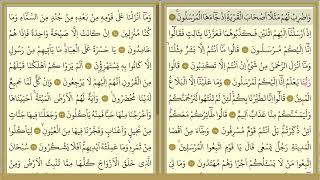 وَاضْرِبْ لَهُمْ مَثَلًا اَصْحَابَ الْقَرْيَةِ اِذْ جَٓاءَهَا الْمُرْسَلُونَ
اِذْ اَرْسَلْنَٓا اِلَيْهِمُ اثْنَيْنِ فَكَذَّبُوهُمَا فَعَزَّزْنَا بِثَالِثٍ فَقَالُٓوا
اِنَّٓا اِلَيْكُمْ مُرْسَلُونَ قَالُوا مَٓا اَنْتُمْ اِلَّا بَشَرٌ مِثْلُنَا وَمَٓا
اَنْزَلَ الرَّحْمٰنُ مِنْ شَيْءٍ اِنْ اَنْتُمْ اِلَّا تَكْذِبُونَ قَالُوا
رَبُّنَا يَعْلَمُ اِنَّٓا اِلَيْكُمْ لَمُرْسَلُونَ وَمَا عَلَيْنَٓا اِلَّا الْبَلَاغُ
الْمُبِينُ قَالُٓوا اِنَّا تَطَيَّرْنَا بِكُمْ لَئِنْ لَمْ تَنْتَهُوا لَنَرْجُمَنَّكُمْ
وَلَيَمَسَّنَّكُمْ مِنَّا عَذَابٌ اَلِيمٌ قَالُوا طَٓائِرُكُمْ مَعَكُمْ
اَئِنْ ذُكِّرْتُمْ بَلْ اَنْتُمْ قَوْمٌ مُسْرِفُونَ وَجَٓاءَ مِنْ
اَقْصَا الْمَدِينَةِ رَجُلٌ يَسْعٰى قَالَ يَا قَوْمِ اتَّبِعُوا الْمُرْسَلِينَ
اِتَّبِعُوا مَنْ لَا يَسْـَٔلُكُمْ اَجْرًا وَهُمْ مُهْتَدُونَ وَمَا لِيَ
وَمَٓا اَنْزَلْنَا عَلٰى قَوْمِهٖ مِنْ بَعْدِهٖ مِنْ جُنْدٍ مِنَ السَّمَٓاءِ وَمَا
كُنَّا مُنْزِلِينَ اِنْ كَانَتْ اِلَّا صَيْحَةً وَاحِدَةً فَاِذَا هُمْ
خَامِدُونَ يَا حَسْرَةً عَلَى الْعِبَادِ مَا يَأْتِيهِمْ مِنْ رَسُولٍ
اِلَّا كَانُوا بِهٖ يَسْتَهْزِؤُنَ اَلَمْ يَرَوْا كَمْ اَهْلَكْنَا قَبْلَهُمْ
مِنَ الْقُرُونِ اَنَّهُمْ اِلَيْهِمْ لَا يَرْجِعُونَ وَاِنْ كُلٌّ لَمَّا جَمِيعٌ
لَدَيْنَا مُحْضَرُونَ وَاٰيَةٌ لَهُمُ الْاَرْضُ الْمَيْتَةُ اَحْيَيْنَاهَا
وَاَخْرَجْنَا مِنْهَا حَبًّا فَمِنْهُ يَأْكُلُونَ وَجَعَلْنَا فِيهَا
جَنَّاتٍ مِنْ نَخِيلٍ وَاَعْنَابٍ وَفَجَّرْنَا فِيهَا مِنَ الْعُيُونِ لِيَأْكُلُوا
مِنْ ثَمَرِهٖ وَمَا عَمِلَتْهُ اَيْدِيهِمْ اَفَلَا يَشْكُرُونَ سُبْحَانَ
الَّذِي خَلَقَ الْاَزْوَاجَ كُلَّهَا مِمَّا تُنْبِتُ الْاَرْضُ وَمِنْ